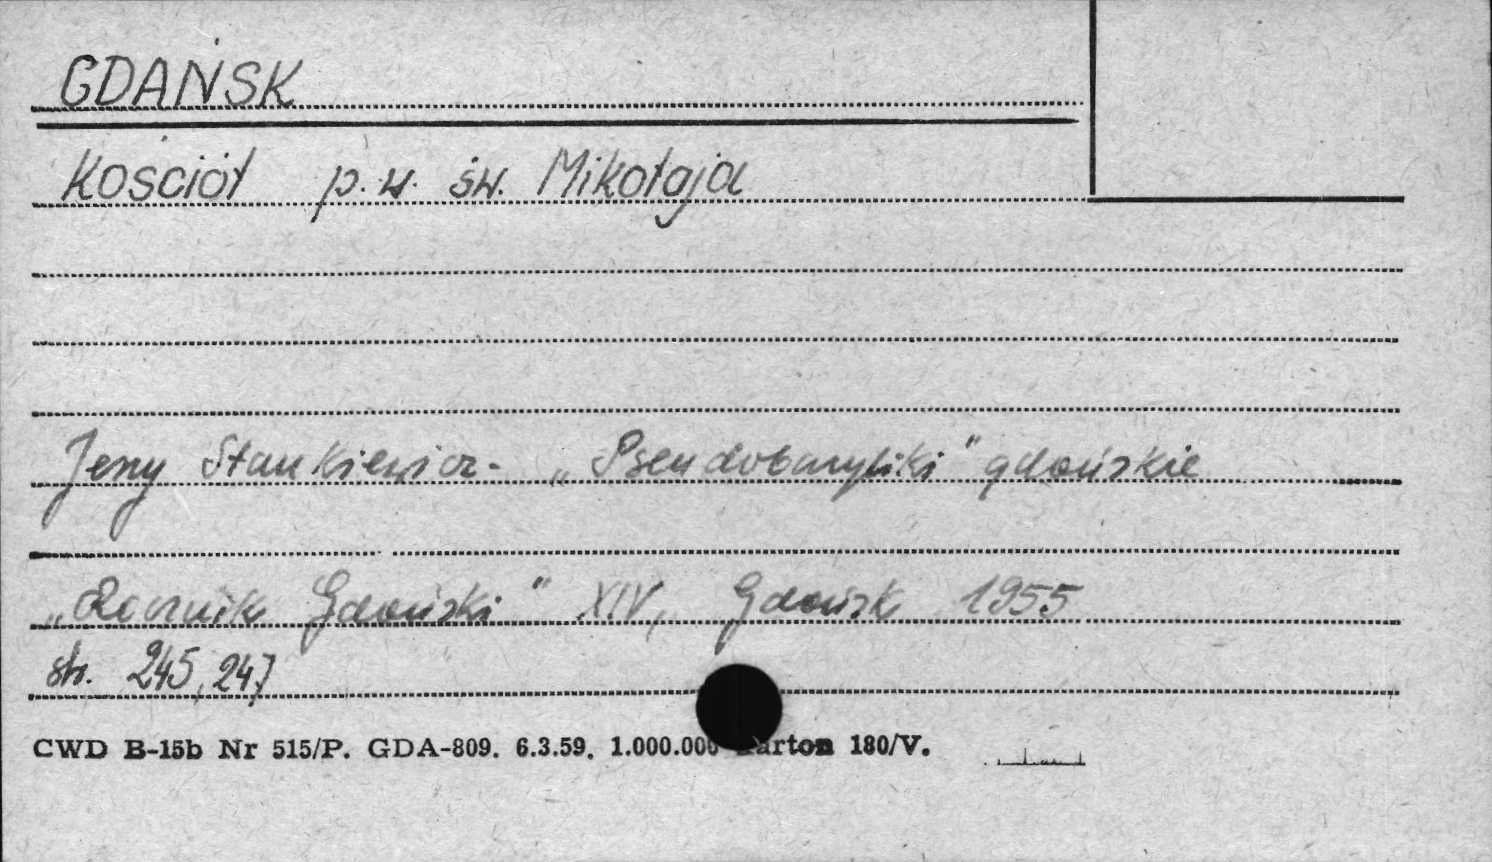 GDAŃSK
Kościół p.w. św. Mikołaja
Jerzy Stankiewicz - „Pseudobazyliki" gdańskie
„Rocznik Gdański" XIV, Gdańsk 1955
str. 245, 247
CWD B-15b Nr 515/P. GDA-809. 6.3.59. 1.000.000 karton 180/V.